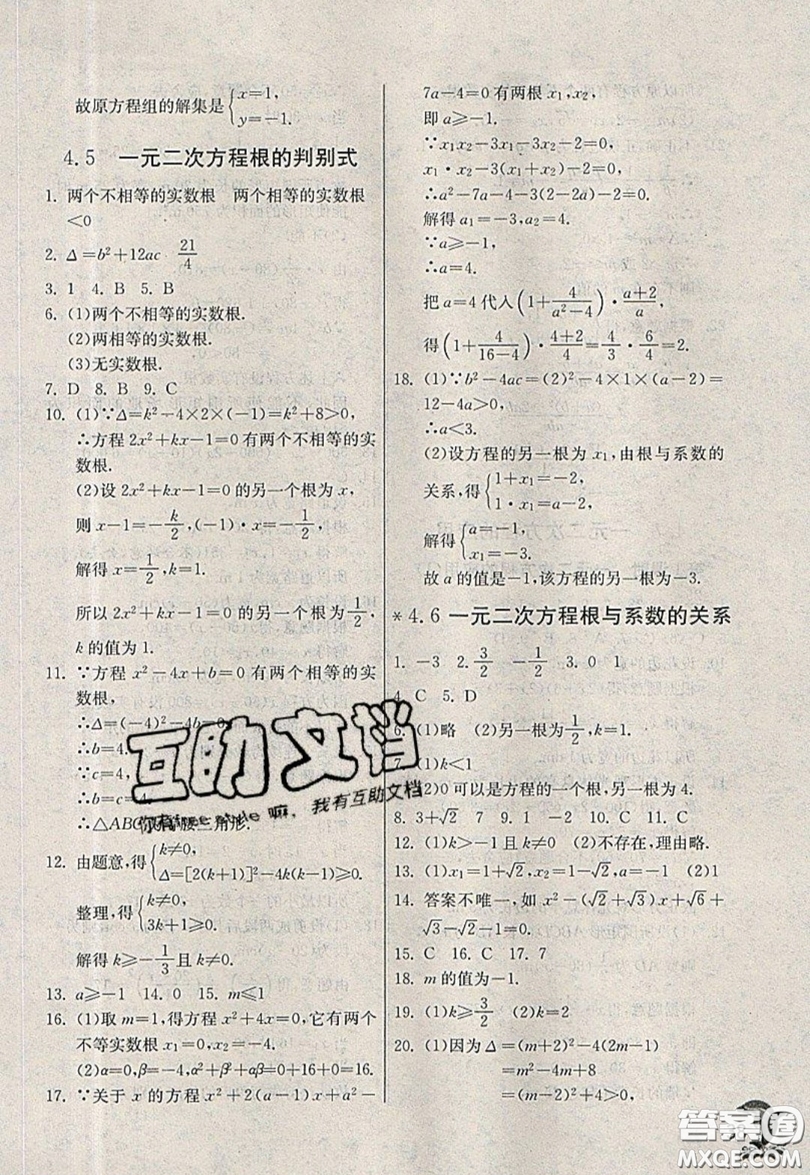 故原方程组的解集是{x=1, y=-1.
4.5 一元二次方程根的判别式
1. 两个不相等的实数根 两个相等的实数根
<0
2. Δ=b²+12ac 21/4
3. 1 4. B 5. B
6. (1)两个不相等的实数根.
(2)两相等的实数根.
(3)无实数根.
7. D 8. B 9. C
10. (1)∵Δ=k²-4×2×(-1)=k²+8>0,
∴方程 2x²+kx-1=0 有两个不相等的实
数根.
(2)设 2x²+kx-1=0 的另一个根为 x,
则 x-1=-k/2,(-1)·x=-1/2,
解得 x=1/2,k=1.
所以 2x²+kx-1=0 的另一个根为1/2,
k 的值为 1.
11. ∵方程 x²-4x+b=0 有两个相等的实
数根,
∴Δ=(-4)²-4b=0,
∴b=4
∵c=4,
∴b=c=4,
∴△ABC 三角形.
12. 由题意,得{k≠0, Δ=[2(k+1)]²-4k(k-1)≥0.
整理,得{k≠0, 3k+1≥0.
解得 k≥-1/3且 k≠0.
13. a≥-1 14. 0 15. m≤1
16. (1)取 m=1,得方程 x²+4x=0,它有两个
不等实数根 x₁=0,x₂=-4.
(2)α=0,β=-4,α²+β²+αβ=0+16+0=16.
17. ∵关于 x 的方程 x²+2(a-1)x+a²-
7a-4=0 有两根 x₁,x₂,
即 a≥-1.
∵x₁x₂-3x₁-3x₂-2=0,
x₁·x₂-3(x₁+x₂)-2=0,
∴a²-7a-4-3(2-2a)-2=0,
解得 a₁=-3,a₂=4.
∵a≥-1,
∴a=4.
把 a=4 代入(1+4/(a²-4))·(a+2)/a,
得(1+4/(16-4))·(4+2)/4=4/3·6/4=2.
18. (1)∵b²-4ac=(2)²-4×1×(a-2)=
12-4a>0,
∴a<3.
(2)设方程的另一根为 x₁,由根与系数的
关系,得{1+x₁=-2, 1·x₁=a-2,
解得{a=-1, x₁=-3.
故 a 的值是-1,该方程的另一根为-3.
*4.6 一元二次方程根与系数的关系
1. -3 2. 3/2 -1/2 3. 0 1
4. C 5. D
6. (1)略 (2)另一根为1/2,k=1.
7. (1)k<1
(2)0 可以是方程的一个根,另一根为 4.
8. 3+√2 7 9. 1 -2 10. C 11. C
12. (1)k>-1 且 k≠0 (2)不存在,理由略.
13. (1)x₁=1+√2,x₂=1-√2 (2)1
14. 答案不唯一,如 x²-(√2+√3)x+√6+
√3-√2-1=0.
15. C 16. C 17. 7
18. m 的值为-1.
19. (1)k≥3/2 (2)k=2
20. (1)因为 Δ=(m+2)²-4(2m-1)
=m²-4m+8
=(m-2)²+4>0,
互助文档
嘛，我有互助文档
答案圈
MXQE.COM